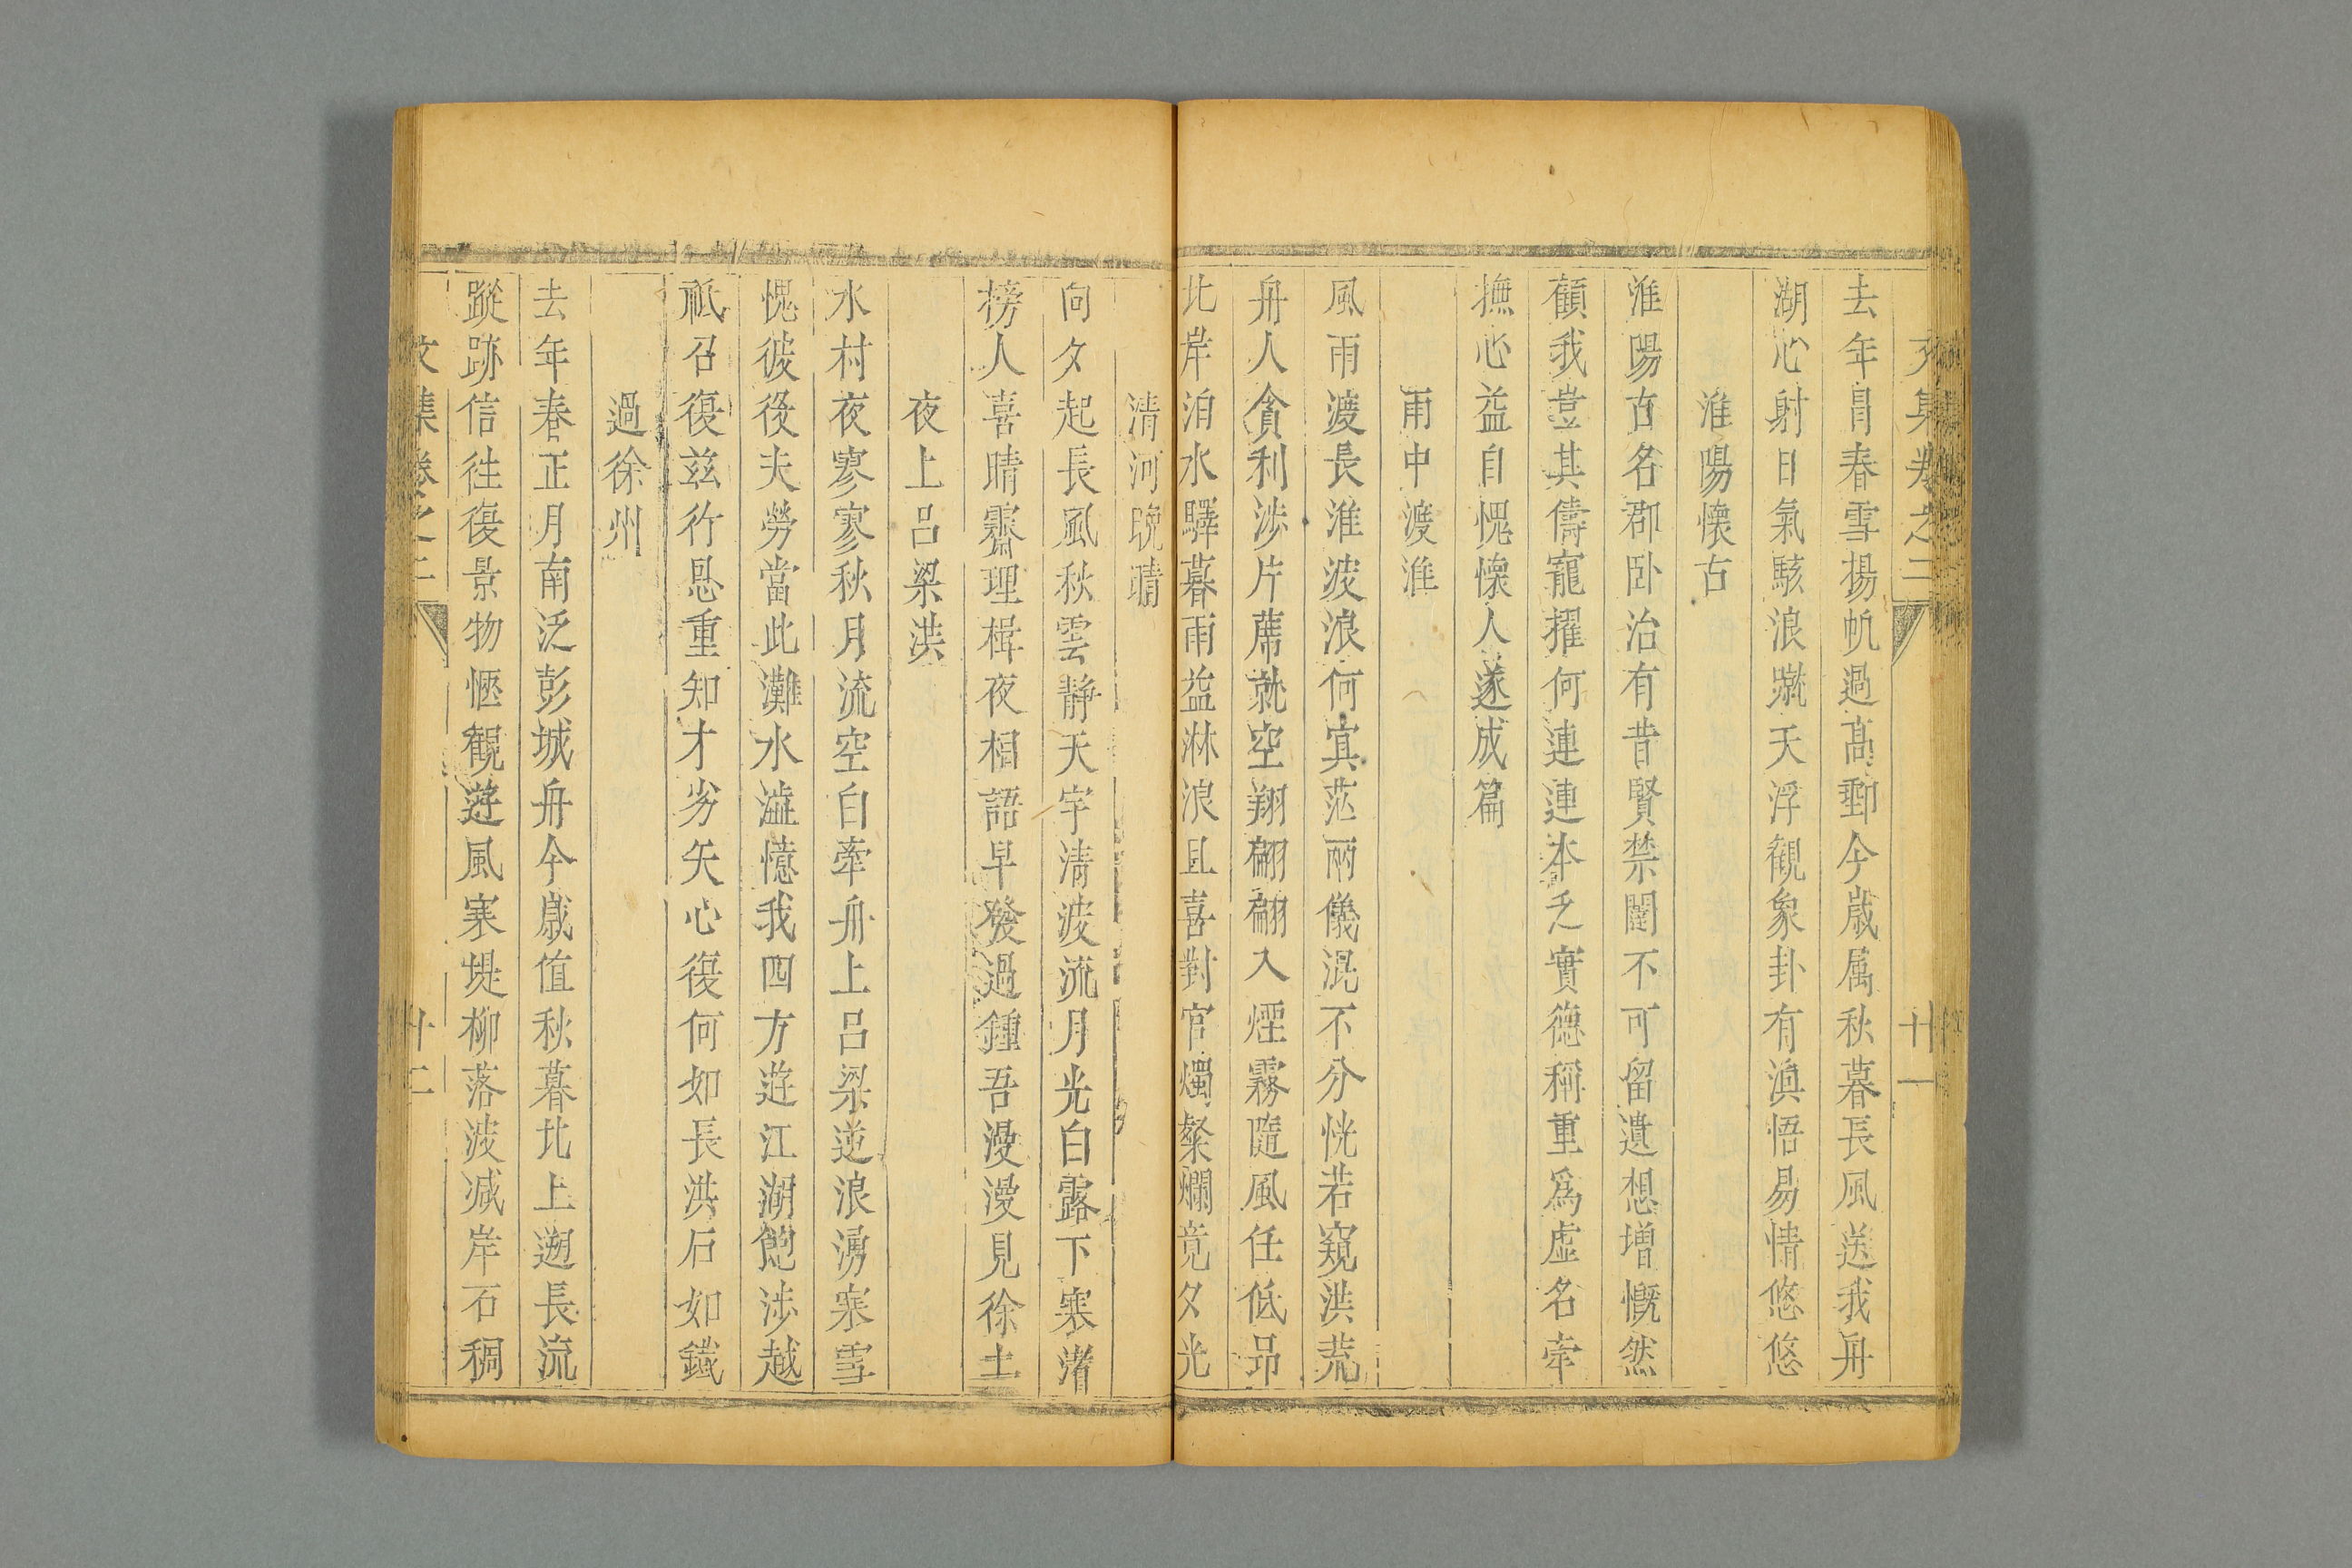 文集卷之二
廿一
去年冒春雪揚帆過高郵今歲属秋暮長風送我舟
湖心射日氣駭浪蹴天浮觀象卦有渙悟易情悠悠
淮陽懷古
淮陽古名郡卧治有昔賢禁闥不可留遺想增慨然
顧我豈其儔寵擢何連連本乏實德稱重爲虛名牽
撫心益自愧懷人遂成篇
雨中渡淮
風雨渡長淮波浪何寘茫兩儀混不分恍若窺洪荒
舟人貪利涉片蓆就空翔翩翩入煙霧隨風任低昂
北岸泊水驛暮雨益淋浪且喜對官燭粲爛竟夕光
清河晚晴
向夕起長風秋雲靜天宇清波流月光白露下寒渚
榜人喜晴霽理楫夜相語早發過鍾吾漫漫見徐土
夜上吕梁洪
水村夜寥寥秋月流空白牽舟上吕梁逆浪湧寒雪
愧彼役夫勞當此灘水澁憶我四方遊江湖飽涉越
祗召復兹行恩重知才劣矢心復何如長洪石如鐵
過徐州
去年春正月南泛彭城舟今歲值秋暮北上遡長流
蹤跡信徃復景物愜觀遊風寒堤柳落波减岸石稠
文集卷之二
廿二